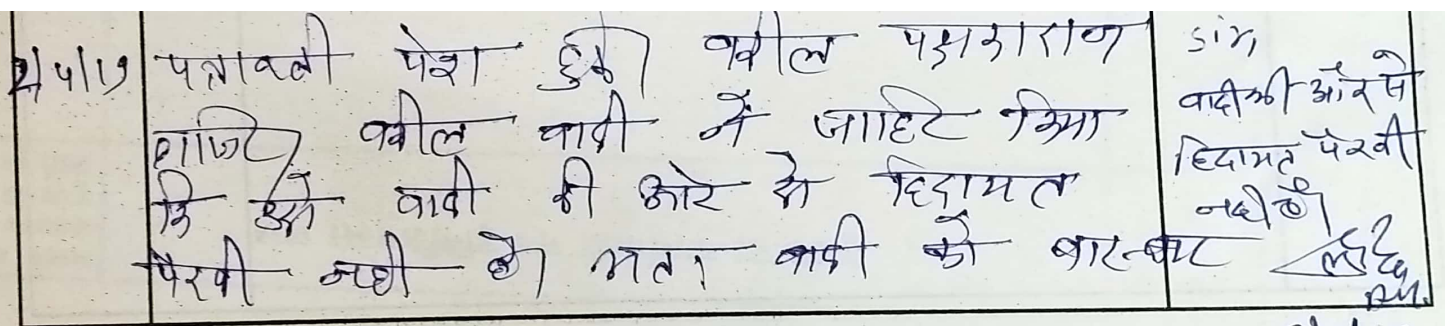 2/4/19
पत्रावली पेश हुई। वकील पक्षकारान
हाजिर, वकील वादी ने जाहिर किया
कि उसे वादी की ओर से हिदायत
पैरवी नहीं है। अतः वादी को बार-बार
Sir,
वादी की ओर से
हिदायत पैरवी
नहीं है।